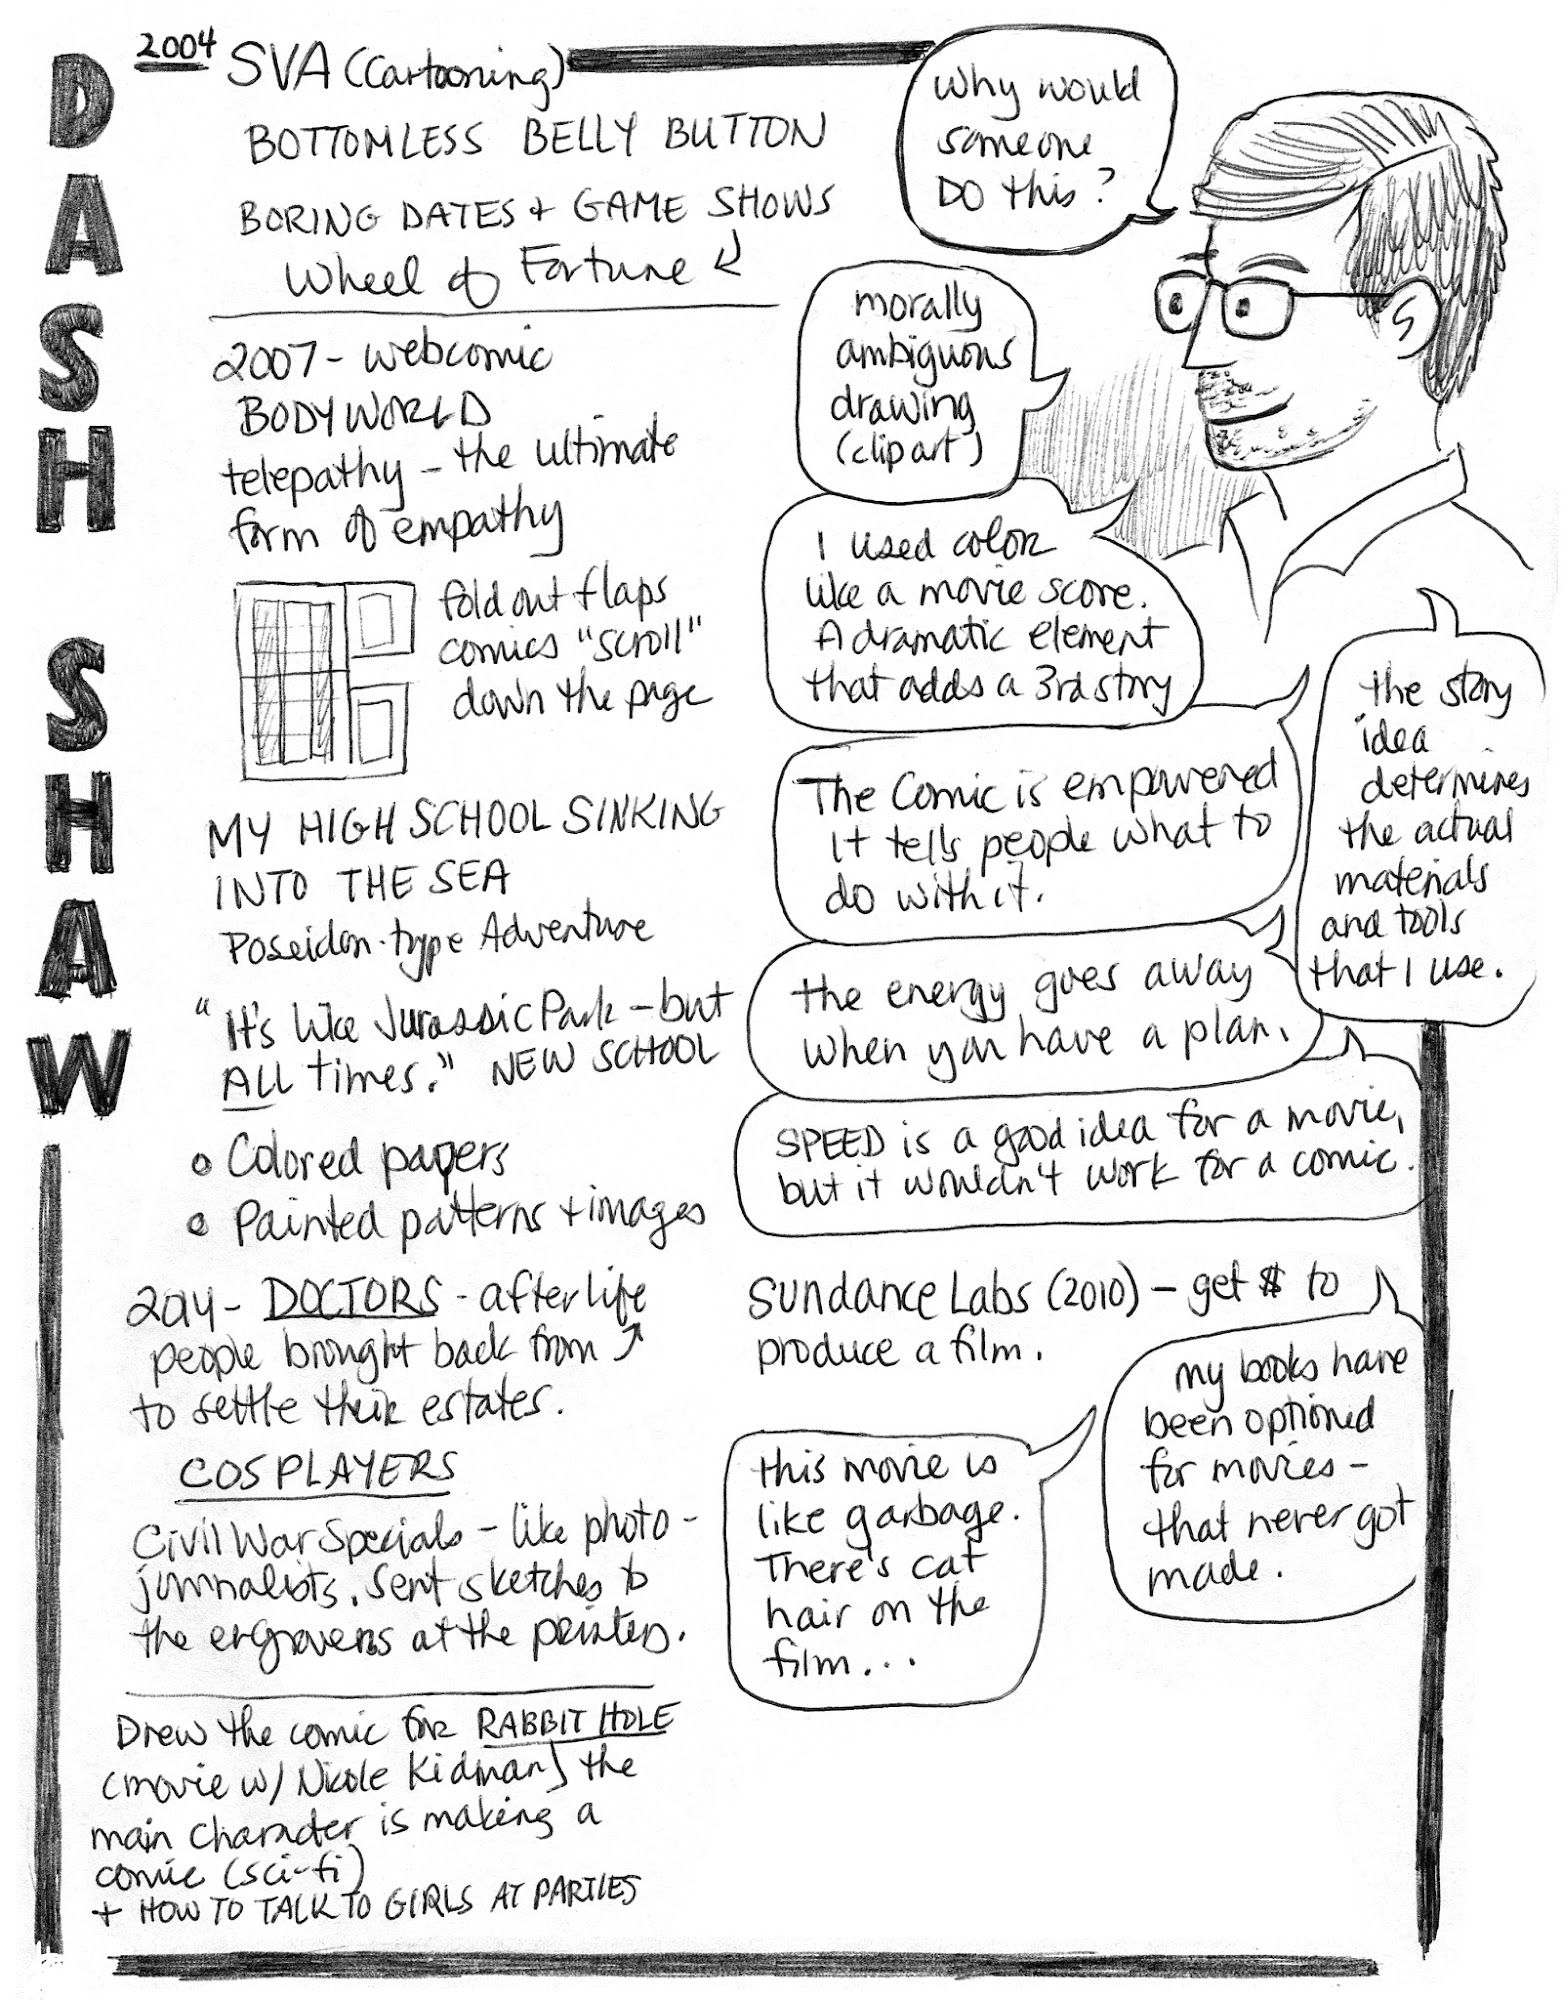 DASH SHAW
2004 SVA (Cartooning)
BOTTOMLESS BELLY BUTTON
BORING DATES + GAME SHOWS
Wheel of Fortune
2007 - webcomic
BODYWORLD
telepathy - the ultimate
form of empathy
fold out flaps
comics "scroll"
down the page
MY HIGH SCHOOL SINKING
INTO THE SEA
Poseidon-type Adventure
"It's like Jurassic Park - but
ALL times." NEW SCHOOL
Colored papers
Painted patterns + images
2014 - DOCTORS - afterlife
people brought back from
to settle their estates.
COSPLAYERS
Civil War Specials - like photo-
journalists. Sent sketches to
the engravers at the printers.
Drew the comic for RABBIT HOLE
(movie w/ Nicole Kidman) the
main character is making a
comic (sci-fi)
+ HOW TO TALK TO GIRLS AT PARTIES
Why would
someone
DO this?
morally
ambiguous
drawing
(clip art)
I used color
like a movie score.
A dramatic element
that adds a 3rd story
the story
idea
determines
the actual
materials
and tools
that I use.
The Comic is empowered
It tells people what to
do with it.
the energy goes away
when you have a plan.
SPEED is a good idea for a movie,
but it wouldn't work for a comic.
Sundance Labs (2010) - get $ to
produce a film.
my books have
been optioned
for movies -
that never got
made.
this movie is
like garbage.
There's cat
hair on the
film...